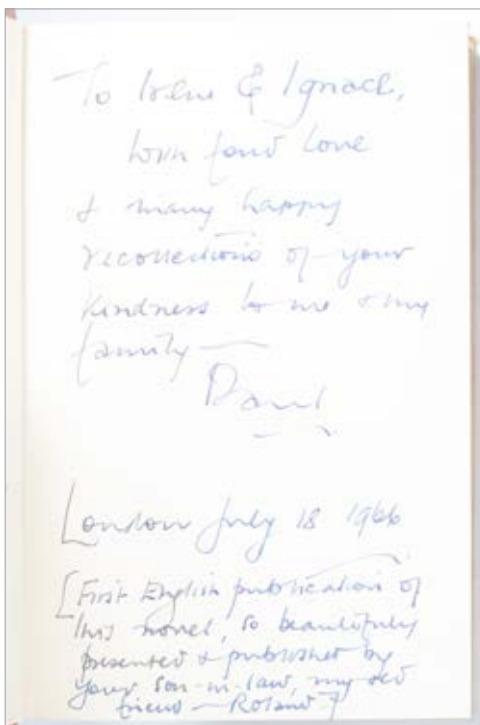 To Irene & Ignace,
with fond love
& many happy
recollections of your
kindness to me & my
family —
David
London July 18 1966
[First English publication of
this novel, so beautifully
presented & published by
your son-in-law, my old
friend — Roland]